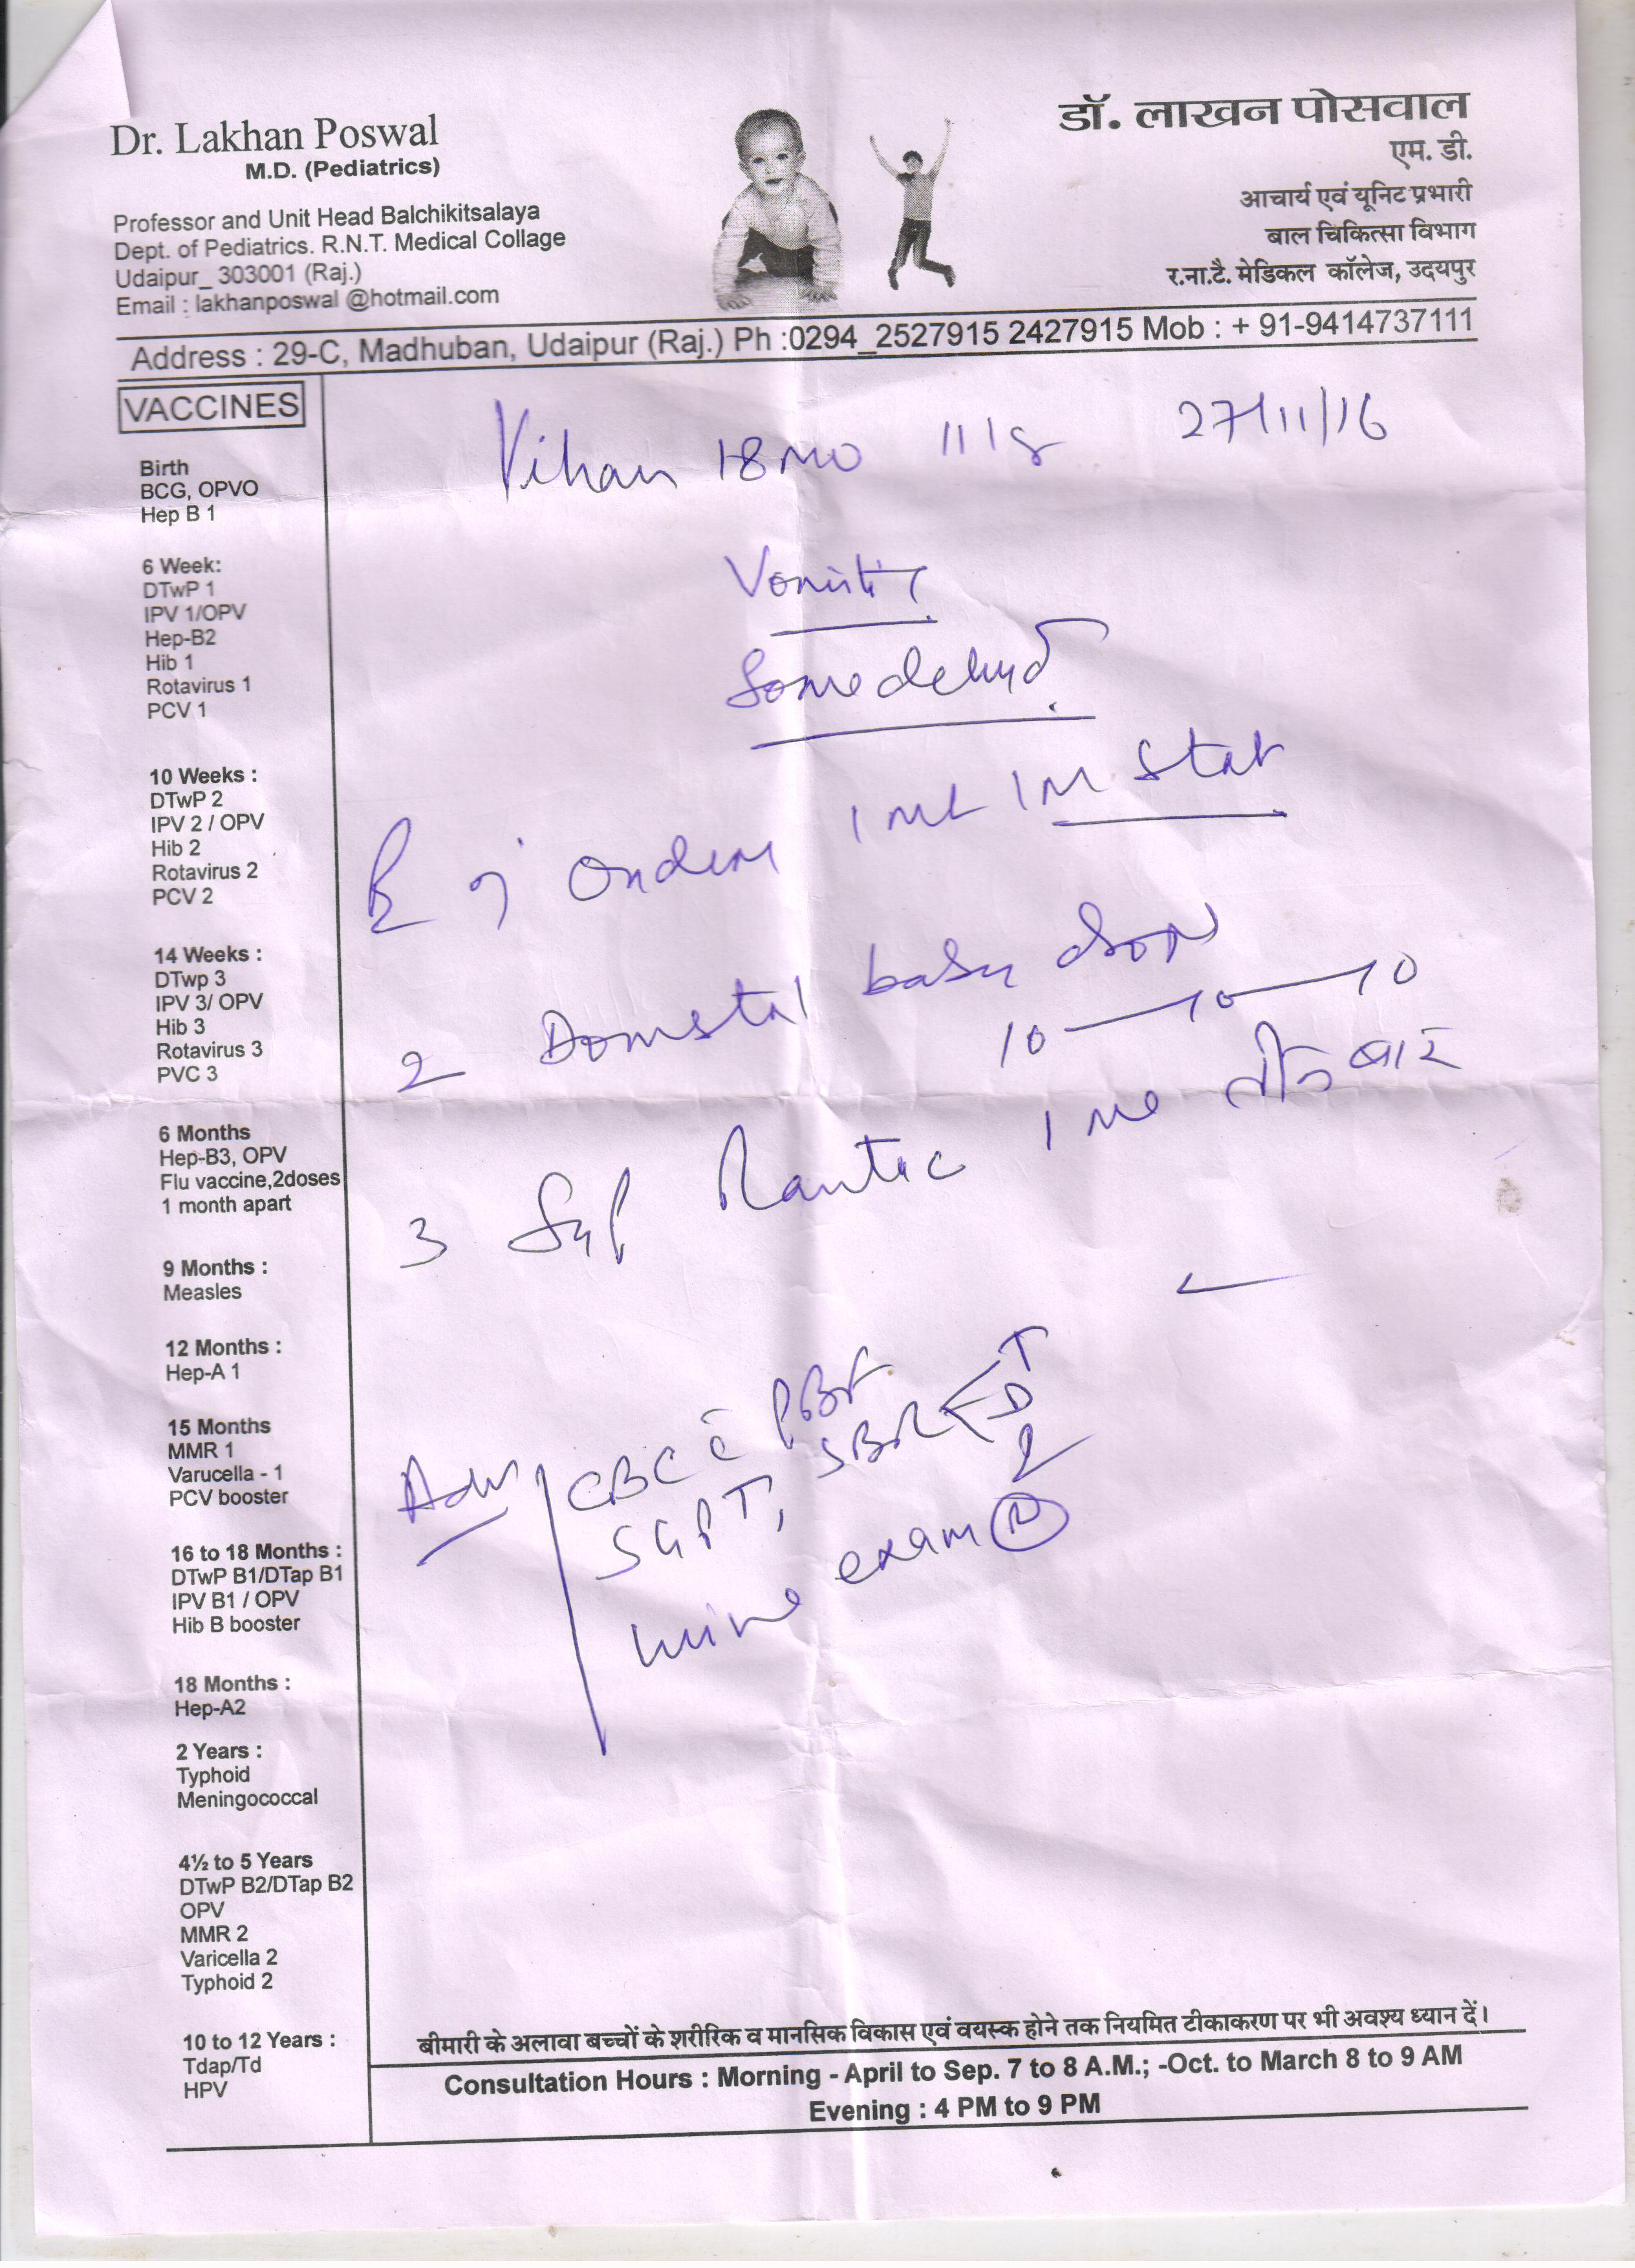 Dr. Lakhan Poswal
M.D. (Pediatrics)
Professor and Unit Head Balchikitsalaya
Dept. of Pediatrics. R.N.T. Medical Collage
Udaipur_ 303001 (Raj.)
Email : lakhanposwal @hotmail.com
डॉ. लाखन पोसवाल
एम. डी.
आचार्य एवं यूनिट प्रभारी
बाल चिकित्सा विभाग
र.ना.टै. मेडिकल कॉलेज, उदयपुर
Address : 29-C, Madhuban, Udaipur (Raj.) Ph :0294_2527915 2427915 Mob : + 91-9414737111
VACCINES
Birth
BCG, OPVO
Hep B 1
6 Week:
DTwP 1
IPV 1/OPV
Hep-B2
Hib 1
Rotavirus 1
PCV 1
10 Weeks :
DTwP 2
IPV 2 / OPV
Hib 2
Rotavirus 2
PCV 2
14 Weeks :
DTwp 3
IPV 3/ OPV
Hib 3
Rotavirus 3
PVC 3
6 Months
Hep-B3, OPV
Flu vaccine,2doses
1 month apart
9 Months :
Measles
12 Months :
Hep-A 1
15 Months
MMR 1
Varucella - 1
PCV booster
16 to 18 Months :
DTwP B1/DTap B1
IPV B1 / OPV
Hib B booster
18 Months :
Hep-A2
2 Years :
Typhoid
Meningococcal
4½ to 5 Years
DTwP B2/DTap B2
OPV
MMR 2
Varicella 2
Typhoid 2
10 to 12 Years :
Tdap/Td
HPV
Vihan 18 mo 27/11/16
Vomiting
Some dehyd.
Ondem 1 ml IM Stat
2 Domstal baby drop
10 — 10 — 10
3 Syp Rantac 1 ml तीन बार
Adv CBC c̄ PBF
SGPT, SBR < T D
urine exam (R)
बीमारी के अलावा बच्चों के शरीरिक व मानसिक विकास एवं वयस्क होने तक नियमित टीकाकरण पर भी अवश्य ध्यान दें।
Consultation Hours : Morning - April to Sep. 7 to 8 A.M.; -Oct. to March 8 to 9 AM
Evening : 4 PM to 9 PM